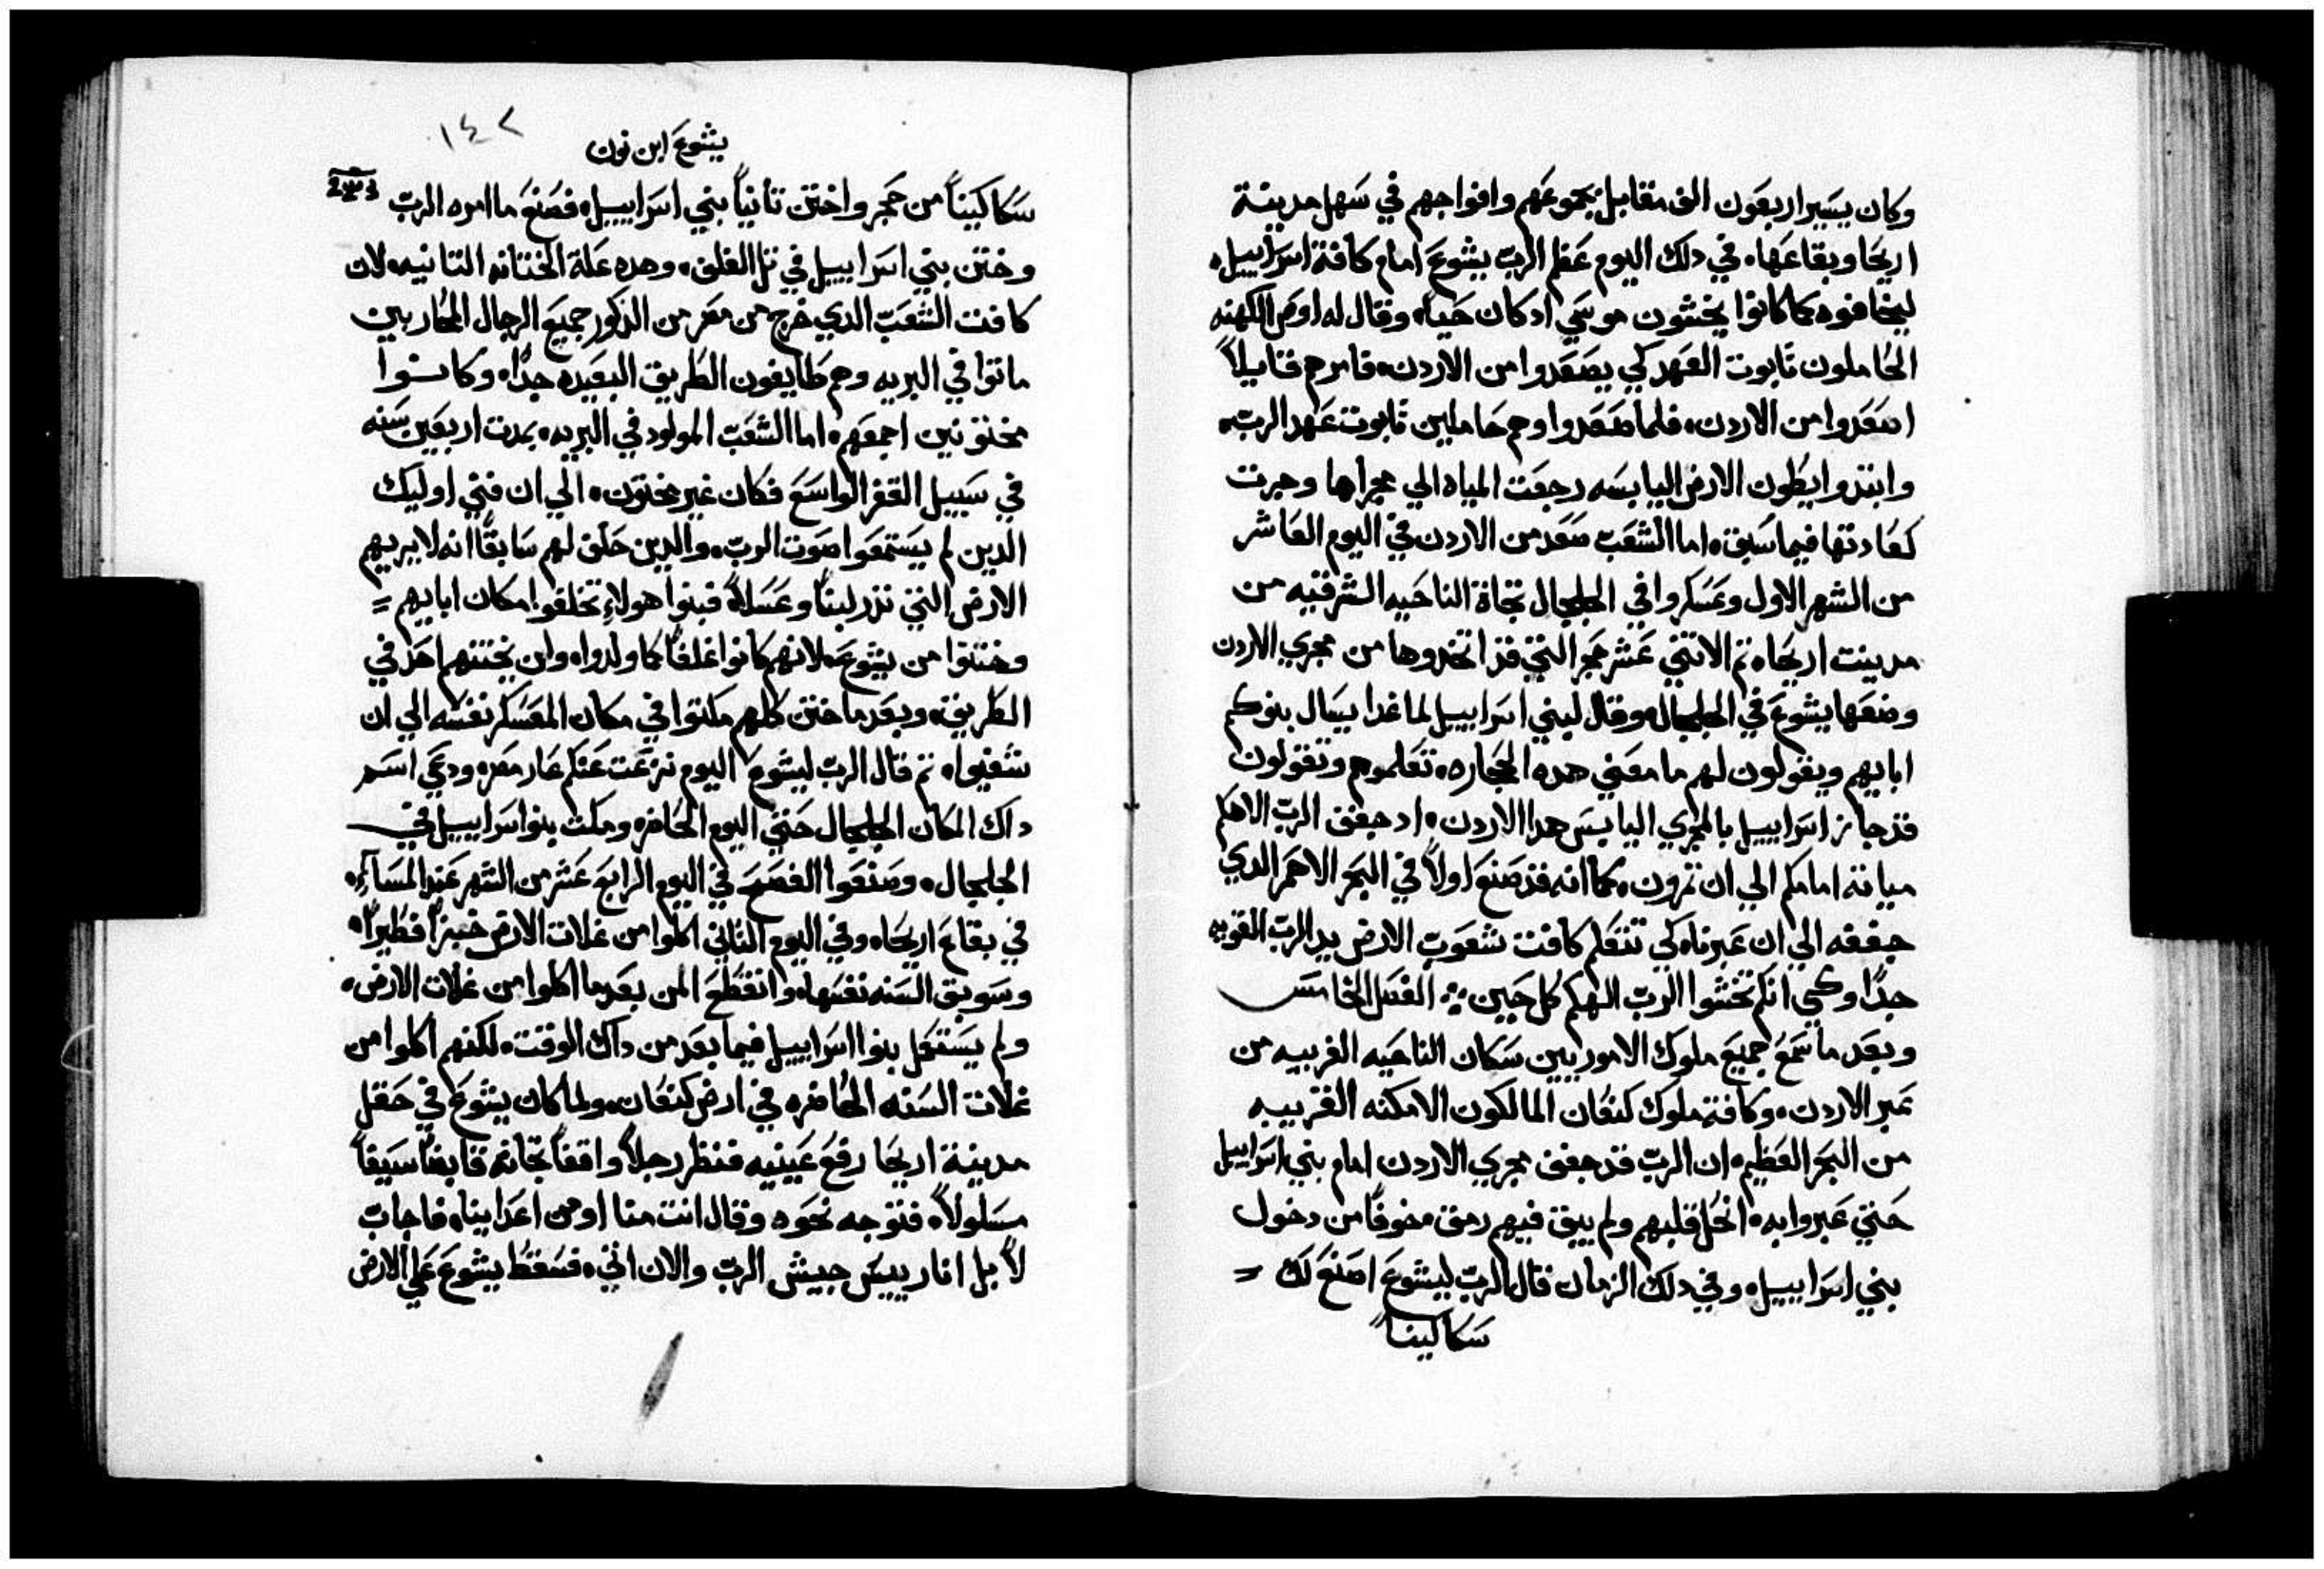 وكان يسير اربعون الف مقابل بجموعهم وافواجهم في سهل مدينة
اريحا وبقاعها، في دلك اليوم عظم الرب يشوع امام كافة اسراييل،
ليخافوه كما كانوا يخشون موسي ادكان حيا، وقال له اوص الكهنه
الحاملون تابوت العهد كي يصعدوا من الاردن، فامرهم قايلاً
اصعدوا من الاردن، فلما صعدوا وهم حاملين تابوت عهد الرب،
وابتدوا يطون الارض اليابسه رجعت المياه الي مجراها وجرت
كعادتها فيما سبق، اما الشعب صعد من الاردن في اليوم العاشر
من الشهر الاول وعسكروا في الجلجال تجاة الناحيه الشرقيه من
مدينت اريحا، تم الاتني عشر حجر التي قد اتخدوها من مجري الاردن
وضعها يشوع في الجلجال وقال لبني اسراييل لما غدا يسال بنوكم
ابايهم ويقولون لهم ما معني هده الحجاره، تعلموهم وتقولون
قد جاز اسراييل بالمجري اليابس هدا الاردن، اد جفف الرب الاهكم
مياته امامكم الي ان تمرون، كما انه قد صنع اولاً في البحر الاحمر الدي
جففه الي ان عبرناه كي تتعلم كافت شعوب الارض يد الرب القويه
جدًا وكي انكم تخشوا الرب الهكم كل حين ؞ الفصل الخامس
وبعد ما سمع جميع ملوك الاموريين سكان الناحيه الغربيه من
عبر الاردن، وكافة ملوك كنعان المالكون الامكنه القريبه
من البحر العظيم، ان الرب قد جفف مجري الاردن امام بني اسراييل
حتي عبروا به، انحل قلبهم ولم يبق فيهم رمق خوفًا من دخول
بني اسراييل، وفي دلك الزمان قال الرب ليشوع اصنع لك =
سكاكينا
١٤٢
يشوع ابن نون
سكاكينًا من حجر واختن تانيًا بني اسراييل، فصنع ما امره الرب
وختن بني اسراييل في تل الغلف، وهده علة الختانه التانيه، لان
كافت الشعب الدي خرج من مصر من الدكور جميع الرجال المحاربين
ماتوا في البريه وهم طايفون الطريق البعيده جدًا، وكانوا
مختونين اجمعهم، اما الشعب المولود في البريه، بمدت اربعين سنه
في سبيل القفر الواسع فكان غير مختون، الي ان فني اوليك
الدين لم يستمعوا صوت الرب، والدين حلف لهم سابقًا انه لا يريهم
الارض التي تدر لبنًا وعسلاً فبنوا هولاءِ تخلفوا مكان ابايهم =
وختنوا من يشوع، لانهم كانوا غلفًا كما ولدوا، ولن يختنهم احد في
الطريق، وبعد ما ختن كلهم مكتوا في مكان المعسكر نفسه الي ان
شفيوا، تم قال الرب ليشوع اليوم نزعت عنكم عار مصر، ودعي اسم
داك المكان الجلجال حتي اليوم الحاضر، ومكت بنوا اسراييل في
الجلجال، وصنعوا الفصح في اليوم الرابع عشر من الشهر عند المسآءِ،
في بقاع اريحا، وفي اليوم التاني اكلوا من غلات الارض خبزًا فطيرًا،
وسويق السنه نفسها، وانقطع المن بعد ما اكلوا من غلات الارض،
ولم يستعمل بنوا اسراييل فيما بعد من داك الوقت، لكنهم اكلوا من
غلات السنه الحاضره في ارض كنعان، ولما كان يشوع في حقل
مدينة اريحا رفع عينيه فنظر رجلاً واقفًا تجاته قابضًا سيفًا
مسلولاً، فتوجه نحوه وقال انت منا او من اعداينا، فاجاب
لا بل انا رييس جيش الرب والان اتي، فسقط يشوع علي الارض